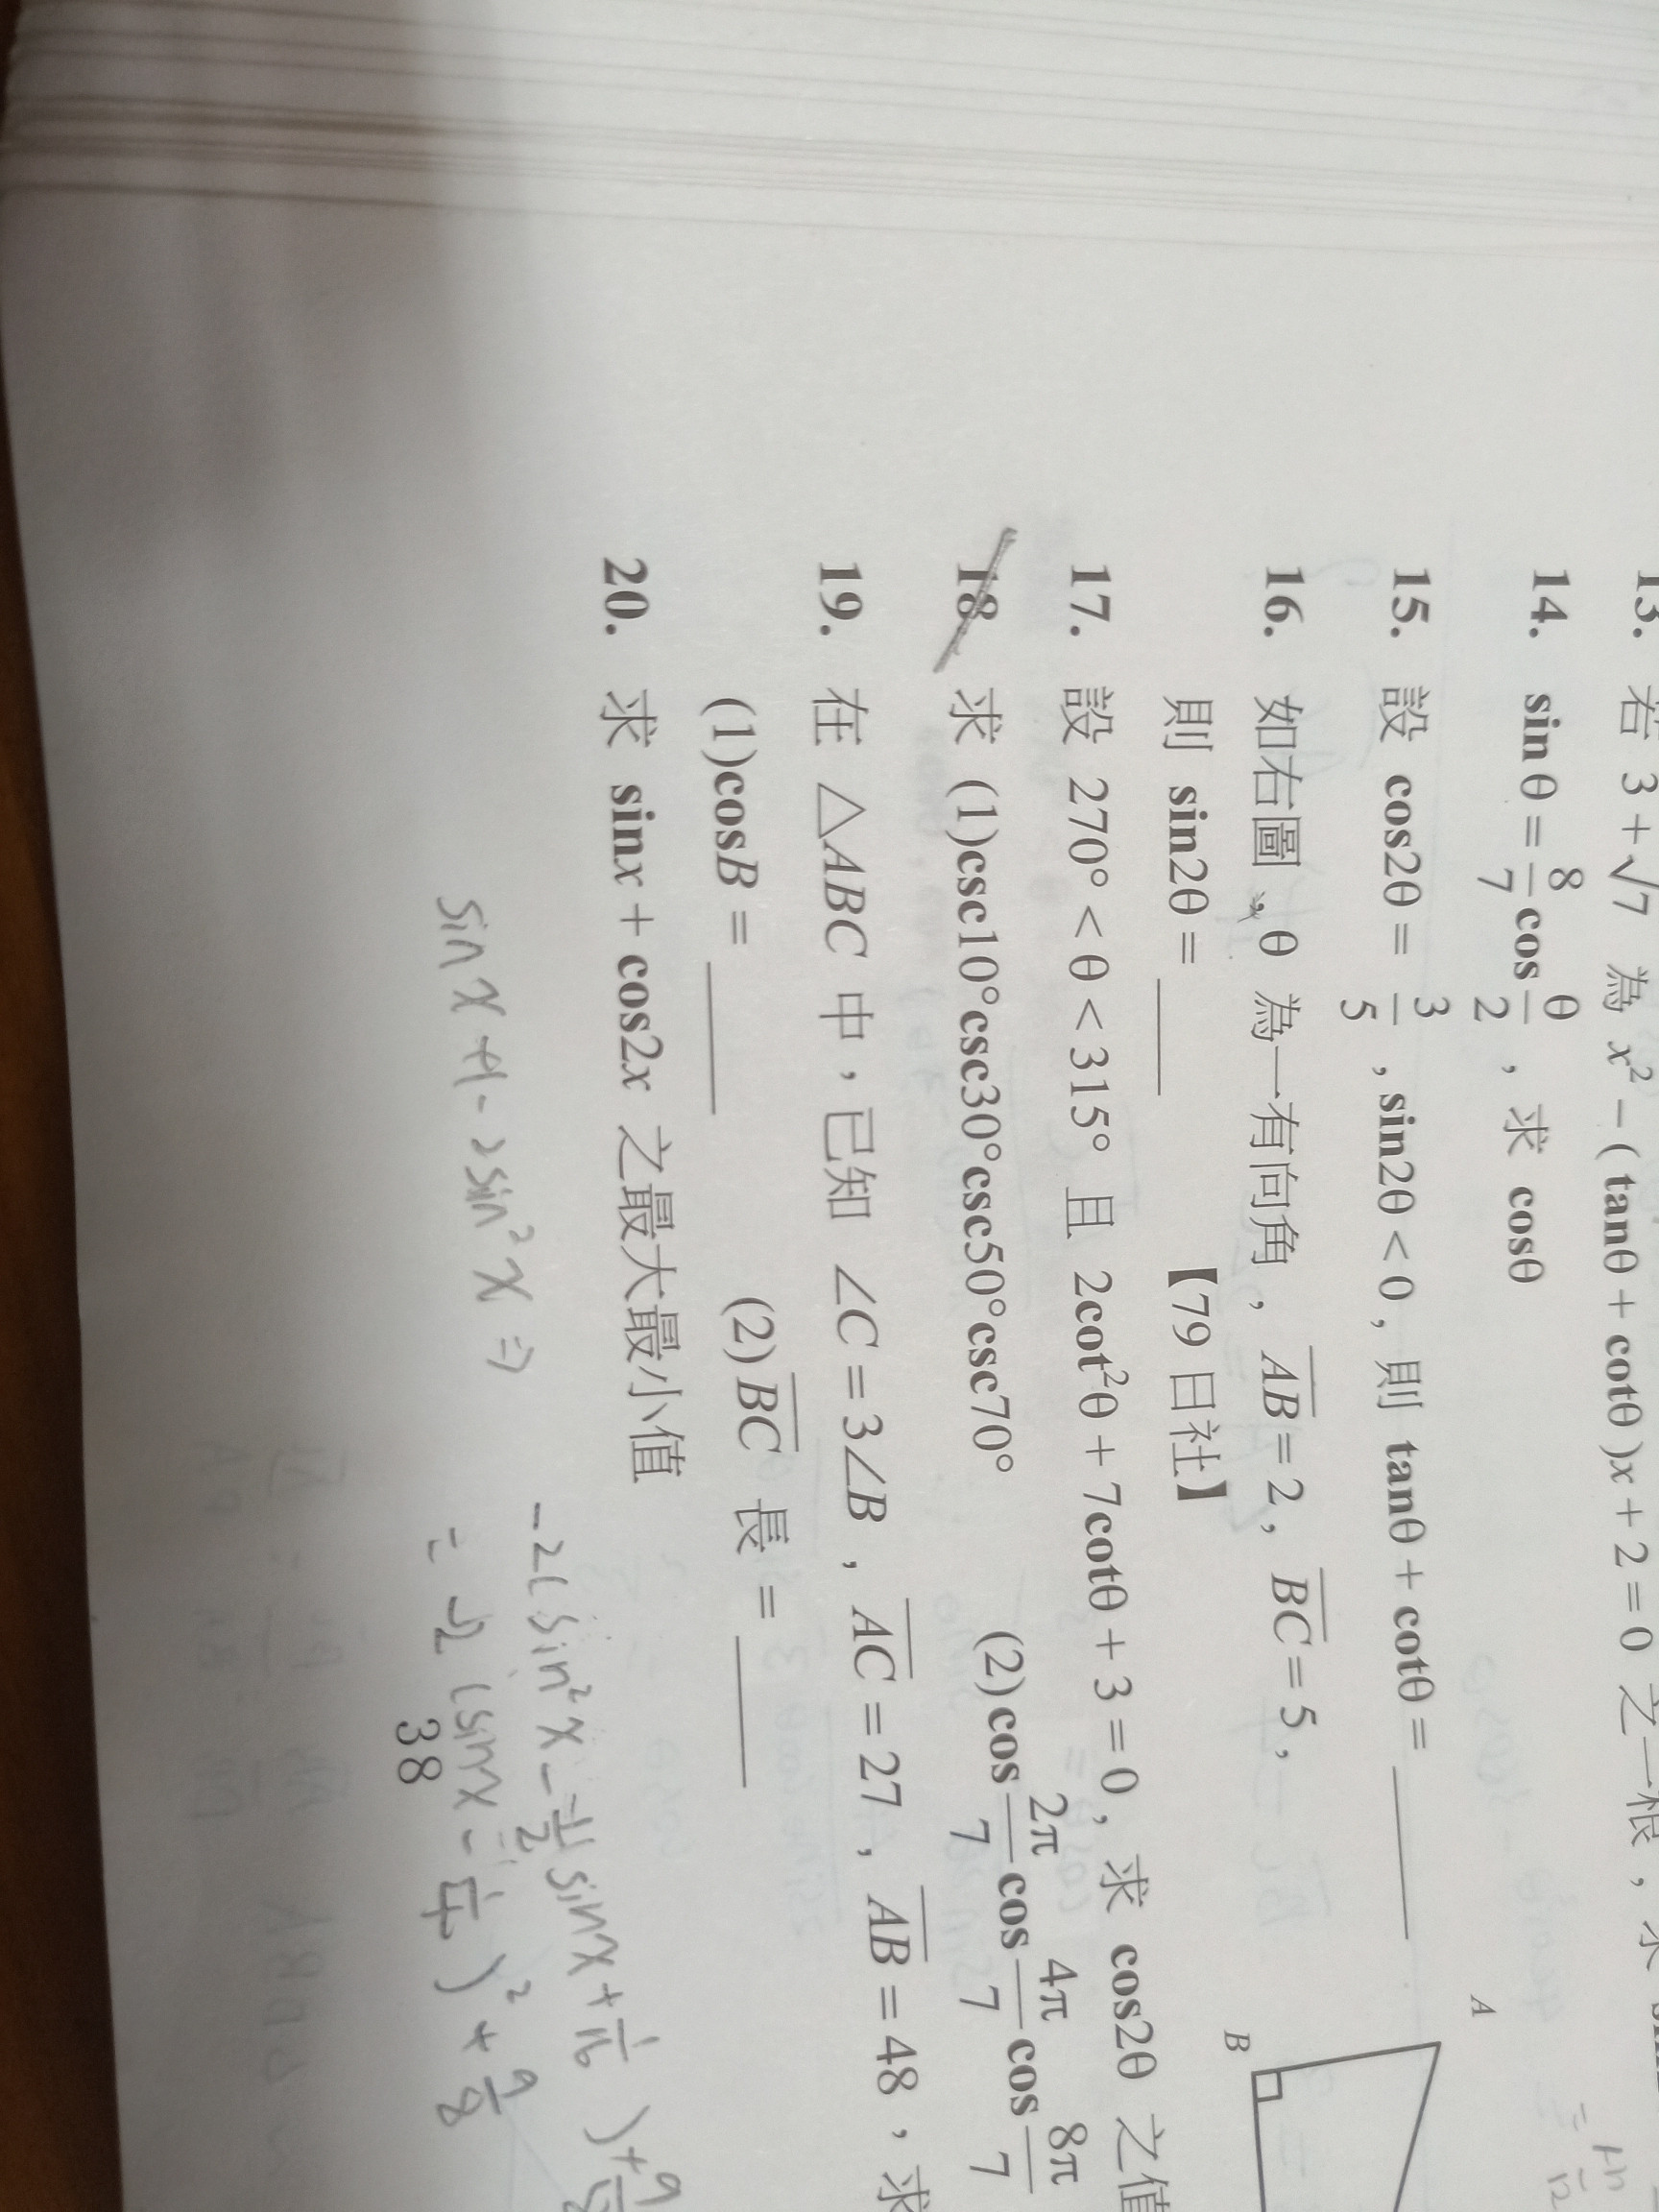 13. 若 3+√7 為 x² − (tanθ + cotθ)x + 2 = 0 之一根，求
14. sinθ = 8/7 cos θ/2，求 cosθ
15. 設 cos2θ = 3/5，sin2θ < 0，則 tanθ + cotθ = ______
16. 如右圖，θ 為一有向角，AB̅ = 2，BC̅ = 5，
則 sin2θ = ______ 【79 日社】
A
B
17. 設 270° < θ < 315° 且 2cot²θ + 7cotθ + 3 = 0，求 cos2θ 之值
18. 求 (1)csc10°csc30°csc50°csc70° (2)cos 2π/7 cos 4π/7 cos 8π/7
19. 在 △ABC 中，已知 ∠C = 3∠B，AC̅ = 27，AB̅ = 48，求
(1)cosB = ______ (2)BC̅ 長 = ______
20. 求 sinx + cos2x 之最大最小值
sin x + 1 - 2 sin² x ⇒
-2(sin² x - 1/2 sin x + 1/16) + 9/8
= -2 (sin x - 1/4)² + 9/8
38